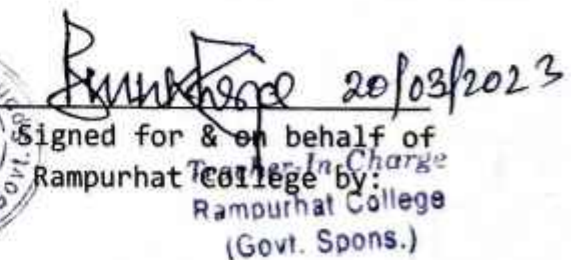 20/03/2023
Signed for & on behalf of
Rampurhat College by:
Teacher-In-Charge
Rampurhat College
(Govt. Spons.)
Govt.